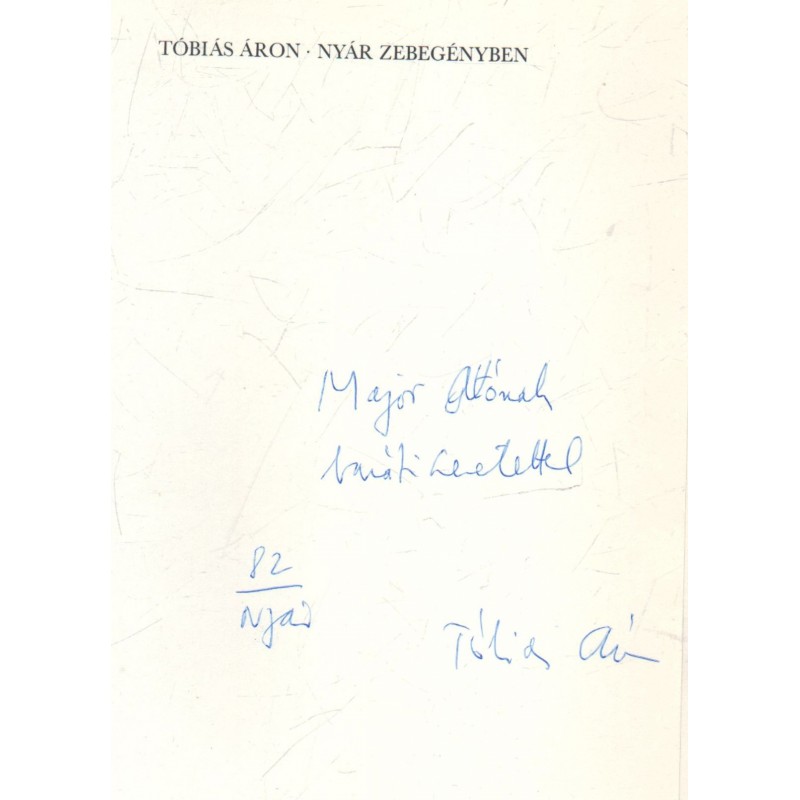 TÓBIÁS ÁRON · NYÁR ZEBEGÉNYBEN
Major Ottónak
baráti szeretettel
82
Nyár
Tóbiás Áron